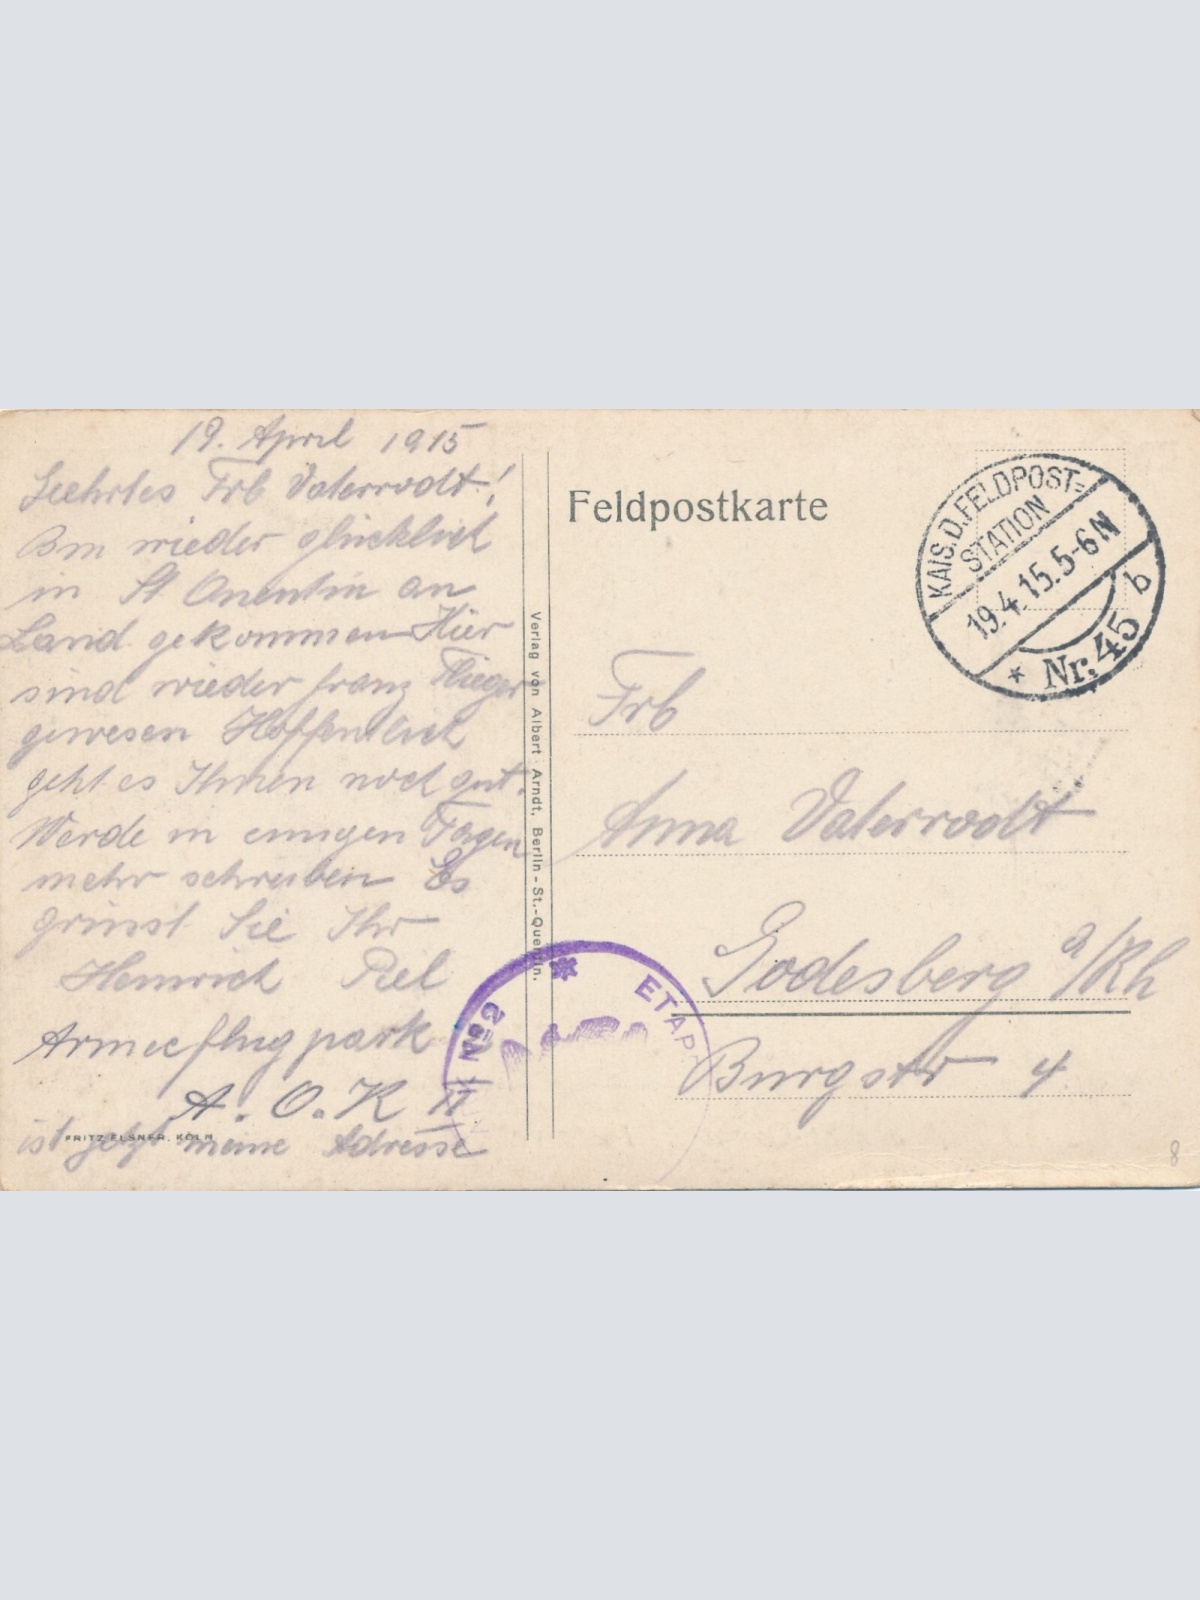 19. April 1915
Geehrtes Frl Vaterrodt!
Bin wieder glücklich
in St Quentin an
Land gekommen Hier
sind wieder franz Flieger
gewesen Hoffentlich
geht es Ihnen noch gut.
Werde in einigen Tagen
mehr schreiben Es
grüsst Sie Ihr
Heinrich
Armeeflugpark
A. O. K II
ist jetzt meine Adresse
FRITZ ELSNER, KÖLN
Verlag von Albert Arndt, Berlin - St.-Quentin.
Feldpostkarte
KAIS. D. FELDPOST=
STATION
19.4.15.5-6N
* Nr. 45 b
Frl
Anna Vaterrodt
Godesberg a/Rh
Burgstr 4
No 2 * ETAP
8